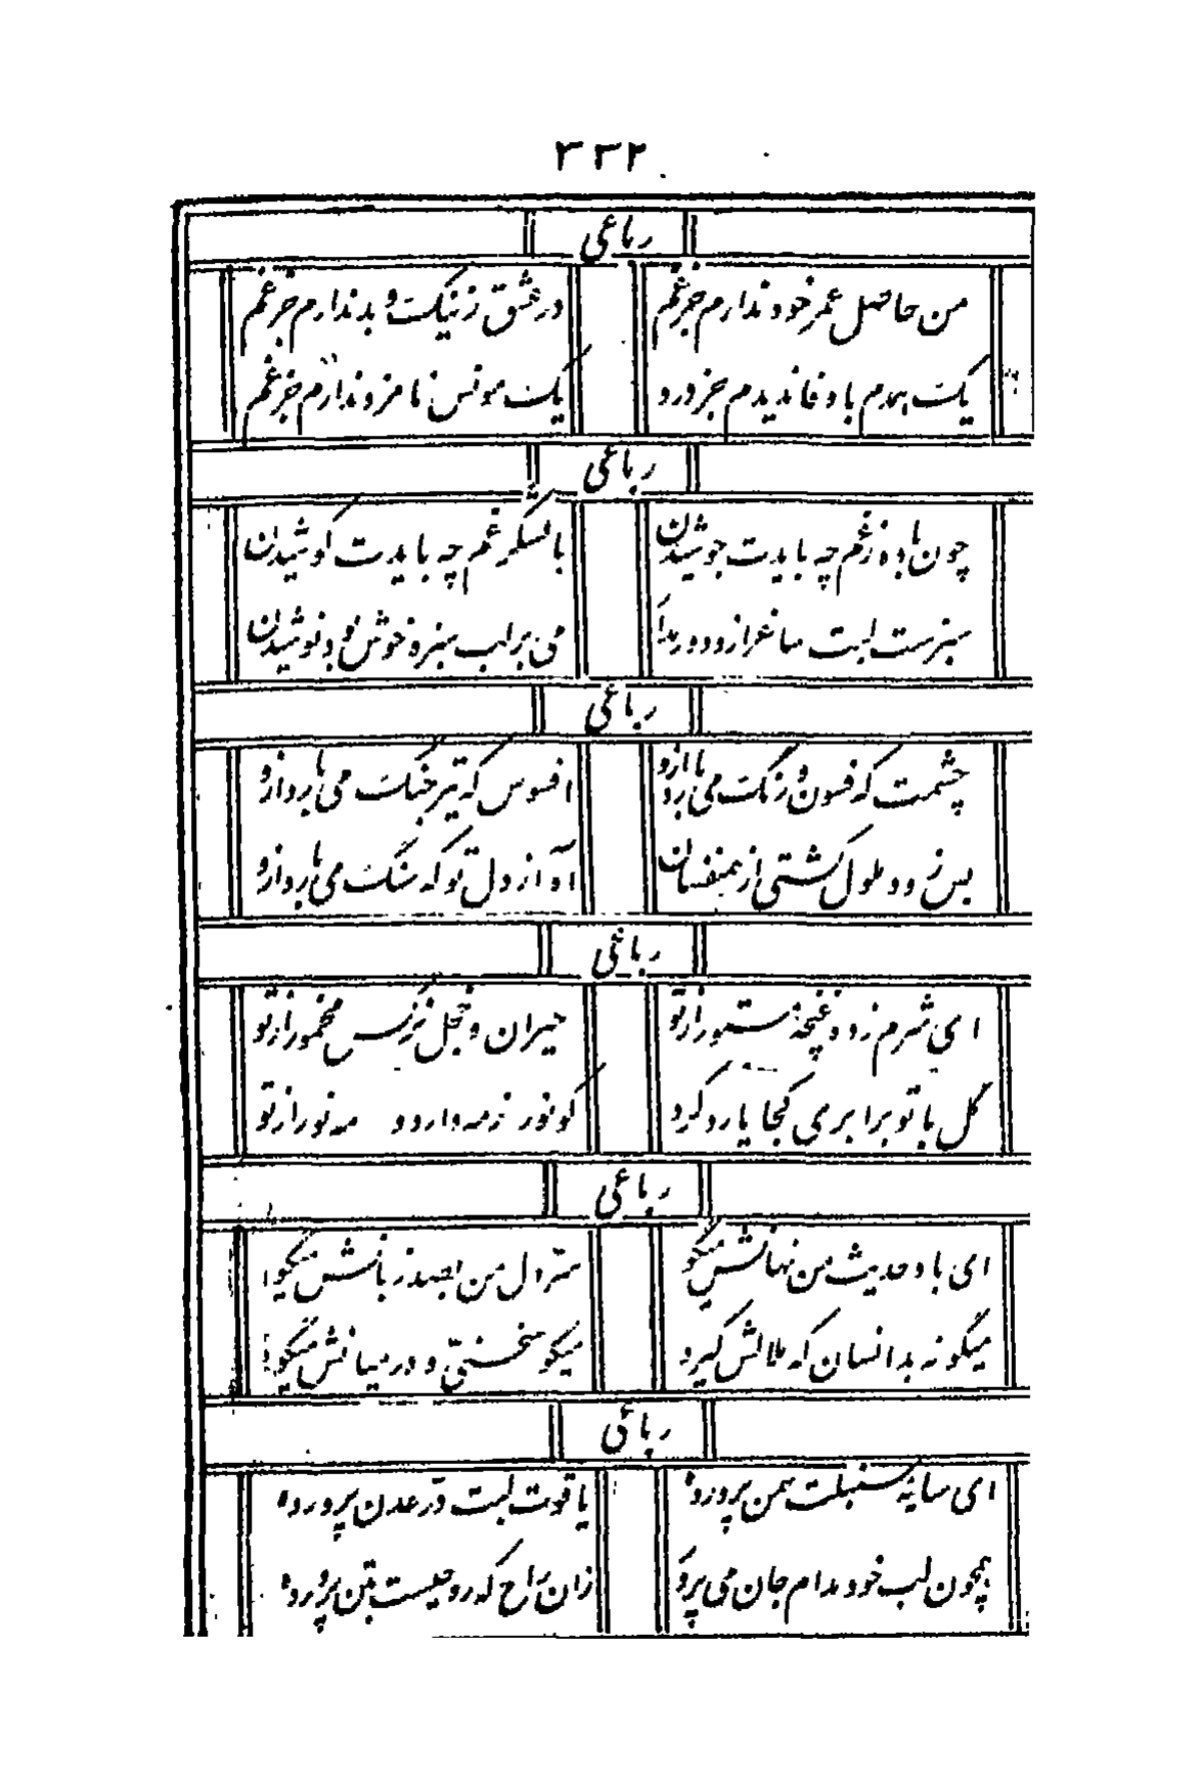 ٣٣٢
رباعی
من حاصل عمر خود ندارم جز غم
در عشق ز نیک و بد ندارم جز غم
یک همدم باوفا ندیدم جز درد
یک مونس نامزد ندارم جز غم
رباعی
چون باده ز غم چه بایدت جوشیدن
با لشکر غم چه بایدت کوشیدن
سبزست لبت ساغر ازو دور مدار
می بر لب سبزه خوش بود نوشیدن
رباعی
چشمت که فسون و رنگ می بارد ازو
افسوس که تیر جنگ می بارد ازو
بس زود ملول گشتی از همنفسان
آه از دل تو که سنگ می بارد ازو
رباعی
ای شرم زده غنچهٔ مستور از تو
حیران و خجل نرگس مخمور از تو
گل با تو برابری کجا یارد کرد
کو نور ز مه دارد و مه نور از تو
رباعی
ای باد حدیث من نهانش میگو
سرّ دل من بصد زبانش میگو
میگو نه بدانسان که ملالش گیرد
میگو سخنی و در میانش میگو
رباعی
ای سایهٔ سنبلت سمن پرورده
یاقوت لبت درّ عدن پرورده
همچون لب خود مدام جان می پرور
زان راح که روحیست بتن پرورده